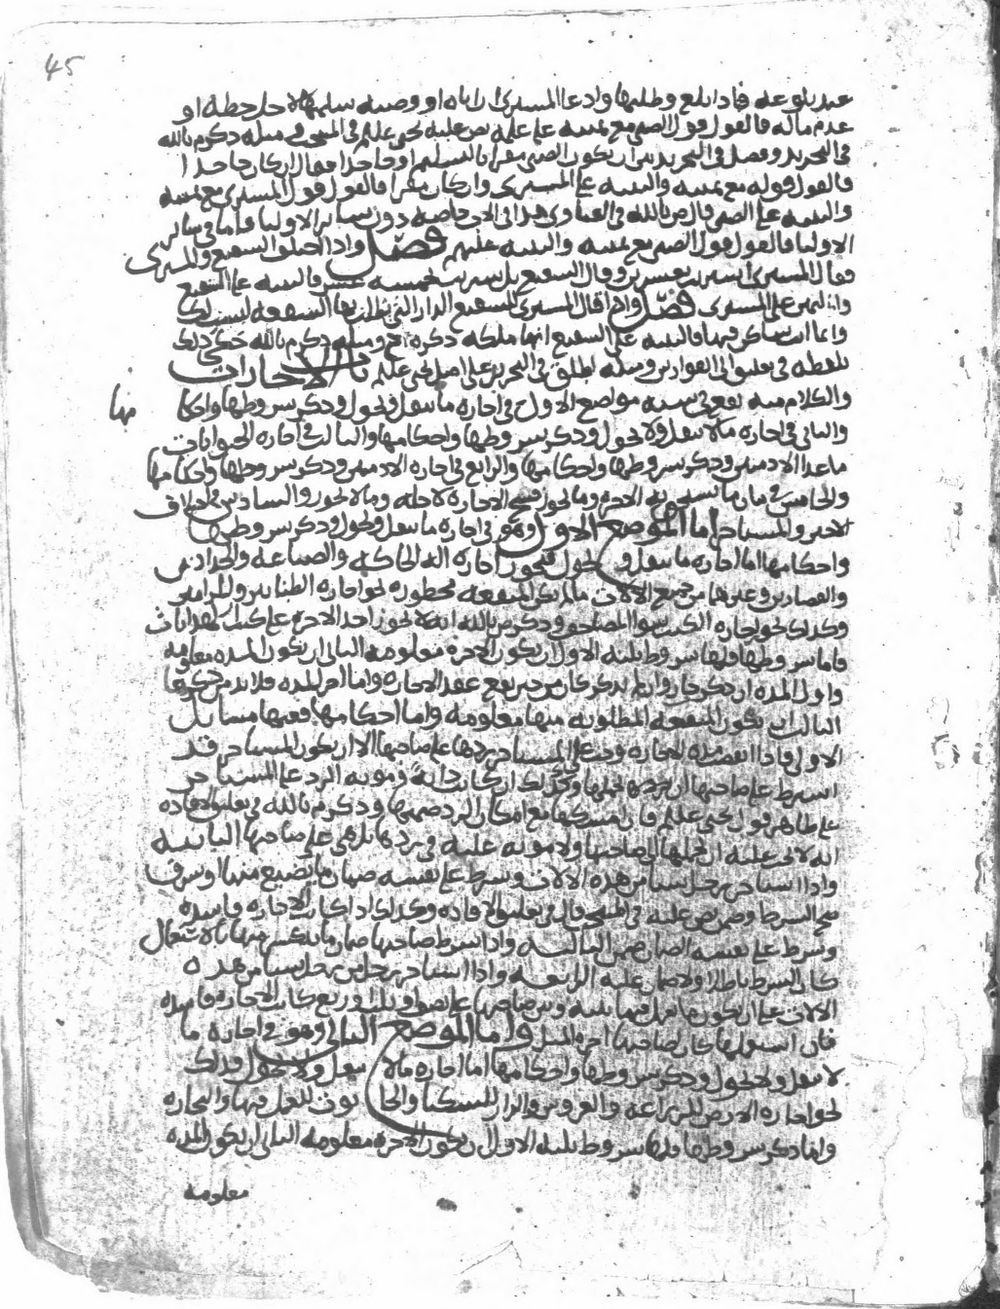 45
عند بلوغه فاذا بلغ وطلبها وادعا المشتري ان اباه او وصيه سلمها لاجل حظه او
عدم ماله فالقول قول الصبي مع يمينه على علمه نص عليه يحيى عليلم في المنتخب وفي مثله ذكره م بالله
في التجريد وفصل في التحرير بين ان يكون الصبي مقرا بالتسليم او جاحدا فقال ان كان جاحدا
فالقول قوله مع يمينه والبينه على المشتري وان كان مقرا فالقول قول المشتري مع يمينه
والبينه على الصبي قال ص بالله في الفتاوى هذا في الاب خاصه دون سائر الاوليا فاما في سائر
الاوليا فالقول قول الصبي مع يمينه والبينه عليهم فصل واذا اختلف الشفيع والمشتري
فقال المشتري اشتريت بعشرين وقال الشفيع بل اشتريت بخمسه عشر فالبينه على الشفيع
واليمين على المشتري فصل واذا قال المشتري للشفيع الدار التي تطلب بها الشفعه ليست لك
وانما انت ساكن فيها فالبينه على الشفيع انها ملكه ذكره اح ومثله ذكره م بالله حكى ذلك
بلفظه في تعليق ابي الفوارس ومثله اطلق في التحرير على اصل يحيى عليلم باب الاجارات
والكلام منه يقع في سته مواضع الاول في اجاره ما ينقل ويحول وذكر شروطها واحكا
مها
والثاني في اجاره ما لا ينقل ولا يحول وذكر شروطها واحكامها والثالث في اجاره الحيوانات
ما عدا الادميين وذكر شروطها واحكامها والرابع في اجاره الادميين وذكر شروطها واحكامها
والخامس في بيان ما تستحق به الاجره وما يجوز فسخ الاجاره لاجله وما لا يجوز والسادس في اختلاف
الاجير والمستاجر اما الموضع الاول وهو في اجاره ما ينقل ويحول وذكر شروطها
واحكامها اما اجاره ما ينقل و يحول فتجوز اجاره اله الحاكه والصناعه والحدادين
والقصارين وغيرها من جميع الالات ما لم تكن المنفعه محظوره نحو اجاره الطنابير والمزامير
وكذلك يجوز اجاره الكتب سوا المصاحف وذكر ص بالله انه لا يجوز اخذ الاجره على كتب الهدايات
فاما شروطها فلها شروط ثلثه الاول ان يكون الاجره معلومه الثاني ان يكون المده معلومه
واول المده ان ذكر جاز وان لم يذكر كان من حين يقع عقد الاجاره واما اخر المده فلا بد من ذكرها
الثالث ان يكون المنفعه المطلوبه منها معلومه واما احكامها ففيها مسايل
الاولى فاذا انقضت مده الاجاره وجب على المستاجر ردها على صاحبها الا ان يكون المستاجر قد
اشترط على صاحبها ان يردها بحملها وكذلك ان كانت دابه ومونه الرد على المستاجر
على ظاهر قول يحيى عليلم فان امسكها مع امكان الرد ضمنها وذكر م بالله في تعليق الافاده
انه لا يجب عليه ان يحملها الى صاحبها ولا مونه عليه في ردها بل هي على صاحبها الثانيه
واذا استاجر رجل شيا من هذه الالات وشرط على نفسه ضمان ما يضيع منها او سرق
صح الشرط وضمن نص عليه في المنتخب قال في تعليق الافاده وكذلك اذا كانت الاجاره فاسده
وشرط على نفسه الضمان ضمن الثالثه واذا شرط صاحبها ضمان ما ينكسر منها بالاستعمال
كان الشرط باطلا ولا ضمان عليه الرابعه واذا استاجر رجل من رجل شيا من هذه
الالات على ان يكون ما عمل فيها بينه وبين صاحبها على نصف او ثلث او ربع كانت الاجاره فاسده
فان استعملها كان لصاحبها اجره المثل واما الموضع الثاني وهو في اجاره ما
لا ينقل ولا يحول وذكر شروطها واحكامها اما اجاره ما لا ينقل ولا يحول فذلك
نحو اجاره الارض للزراعه والغروس والدار للسكنا والحا نوت للعمل فيها والتجاره
واما ذكر شروطها فلها شروط ثلثه الاول ان يكون الاجره معلومه الثاني ان يكون المده
معلومه